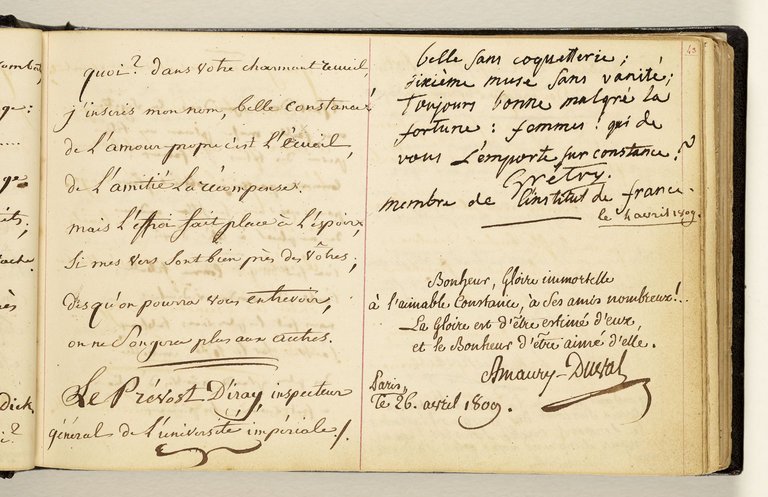 quoi? dans votre charmant recueil,
j'inscris mon nom, belle Constance!
de l'amour-propre c'est l'écueil,
de l'amitié la récompense.
mais l'effroi fait place à l'espoir,
si mes vers sont bien près des vôtres;
dès qu'on pourra vous entrevoir,
on ne songera plus aux autres.
Le Prévost D'iray, inspecteur
général de l'université impériale./.
43
belle sans coquetterie;
dixième muse sans vanité;
Toujours bonne malgré la
fortune: femmes! qui de
vous l'emporte sur constance?
Grétry.
membre de l'institut de france.
le 4 avril 1809.
Bonheur, Gloire immortelle
à l'aimable Constance, à ses amis nombreux!..
La Gloire est d'être estimé d'eux,
et le Bonheur d'être aimé d'elle.
Amaury-Duval
Paris,
le 26. avril 1809.
ge:
ge
Dick,